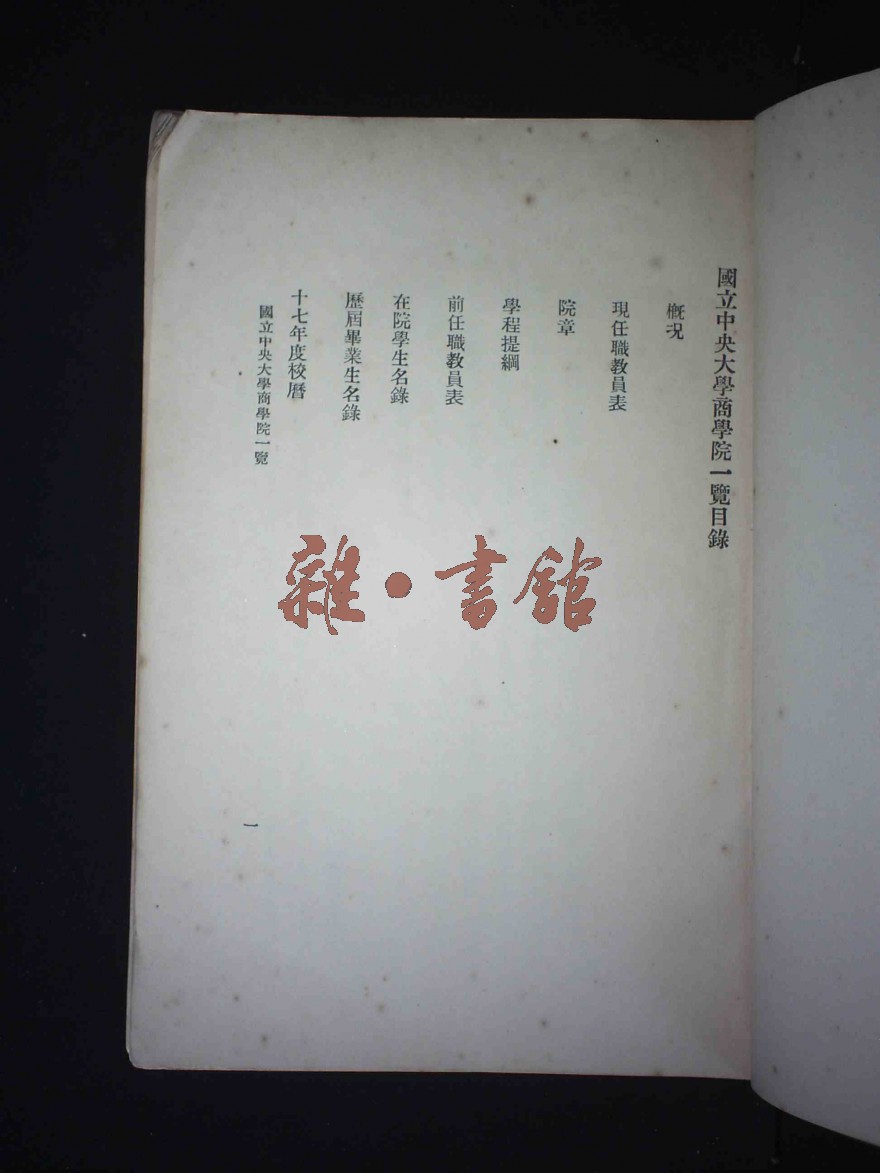 國立中央大學商學院一覽目錄
概況
現任職教員表
院章
學程提綱
前任職教員表
在院學生名錄
歷屆畢業生名錄
十七年度校曆
國立中央大學商學院一覽
一
雜·書館